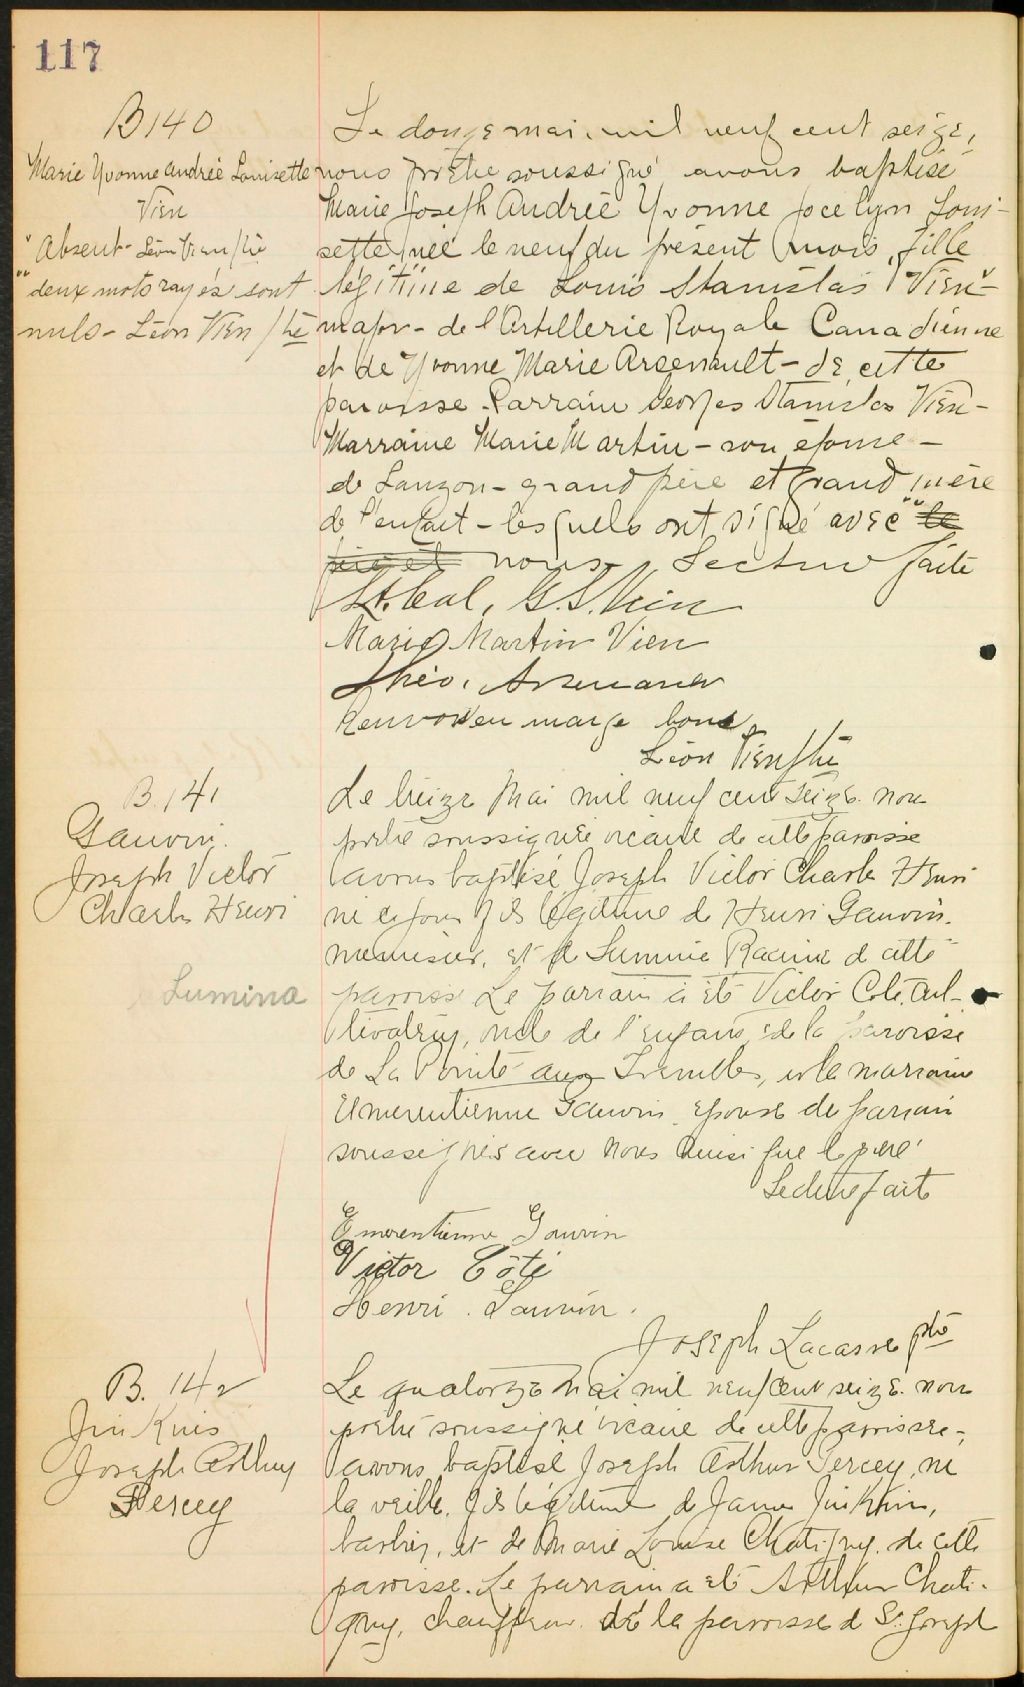 117
B 140
Marie Yvonne Andrée Louisette
Vien
" Absent - Léon Vien ptre
"" deux mots rayés sont
nuls - Léon Vien ptre
Le douze mai, mil neuf cent seize,
nous prêtre soussigné avons baptisé
Marie Joseph Andrée Yvonne Jocelyn Loui-
sette née le neuf du présent mois, fille
légitime de Louis Stanislas Vien "
major - de l'Artillerie Royale Canadienne
et de Yvonne Marie Arsenault - de cette
paroisse - Parrain Georges Stanislas Vien -
Marraine Marie Martin - son épouse -
de Lauzon - grand père et grand mère
de l'enfant - lesquels ont signé avec "" le
père et nous. Lecture faite
Lt. Col. G. S. Vien
Marie Martin Vien
Théo. Arsenault
Renvois en marge bons
Léon Vien ptre
B. 141
Gauvin
Joseph Victor
Charles Henri
Lumina
Le treize Mai mil neuf cent seize nous
prêtre soussigné vicaire de cette paroisse
avons baptisé Joseph Victor Charles Henri
né ce jour fils légitime de Henri Gauvin
menuisier, et de Lumina Racine de cette
paroisse Le parrain a été Victor Coté, cul-
tivateur, oncle de l'enfant, de la paroisse
de La Pointe aux Trembles, et la marraine
Emerentienne Gauvin épouse du parrain
soussignés avec nous ainsi que le père
Lecture faite
Emerentienne Gauvin
Victor Côté
Henri Gauvin.
Joseph Lacasse ptre
B. 142
Jinkins
Joseph Arthur
Percey
Le quatorze Mai mil neuf cent seize nous
prêtre soussigné vicaire de cette paroisse,
avons baptisé Joseph Arthur Percey, né
la veille, fils légitime de James Jinkins,
barbier, et de Marie Louise Chatigny de cette
paroisse. Le parrain a été Arthur Chati-
gny, chauffeur de la paroisse de St. Joseph